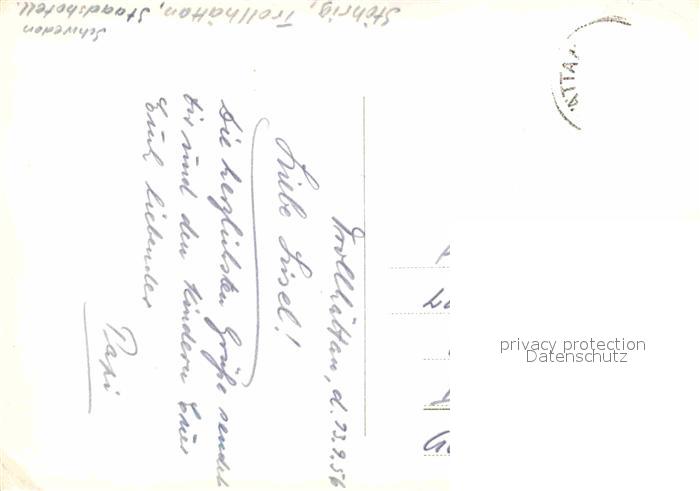 Stöhrig, Trollhättan, Stadshotell.
Schweden
Trollhättan, d. 13.9.56
Liebe Liesel!
Die herzlichsten Grüße sendet
Dir und den Kindern Euer
Euch liebender
Papi
ÄTTA
privacy protection
Datenschutz